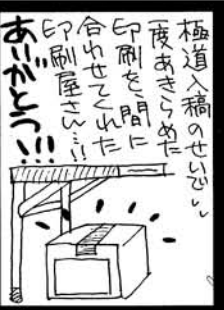 極道入稿のせいで〃
一度あきらめた
印刷を、間に
合わせてくれた
印刷屋さん…!!
ありがとう!!!